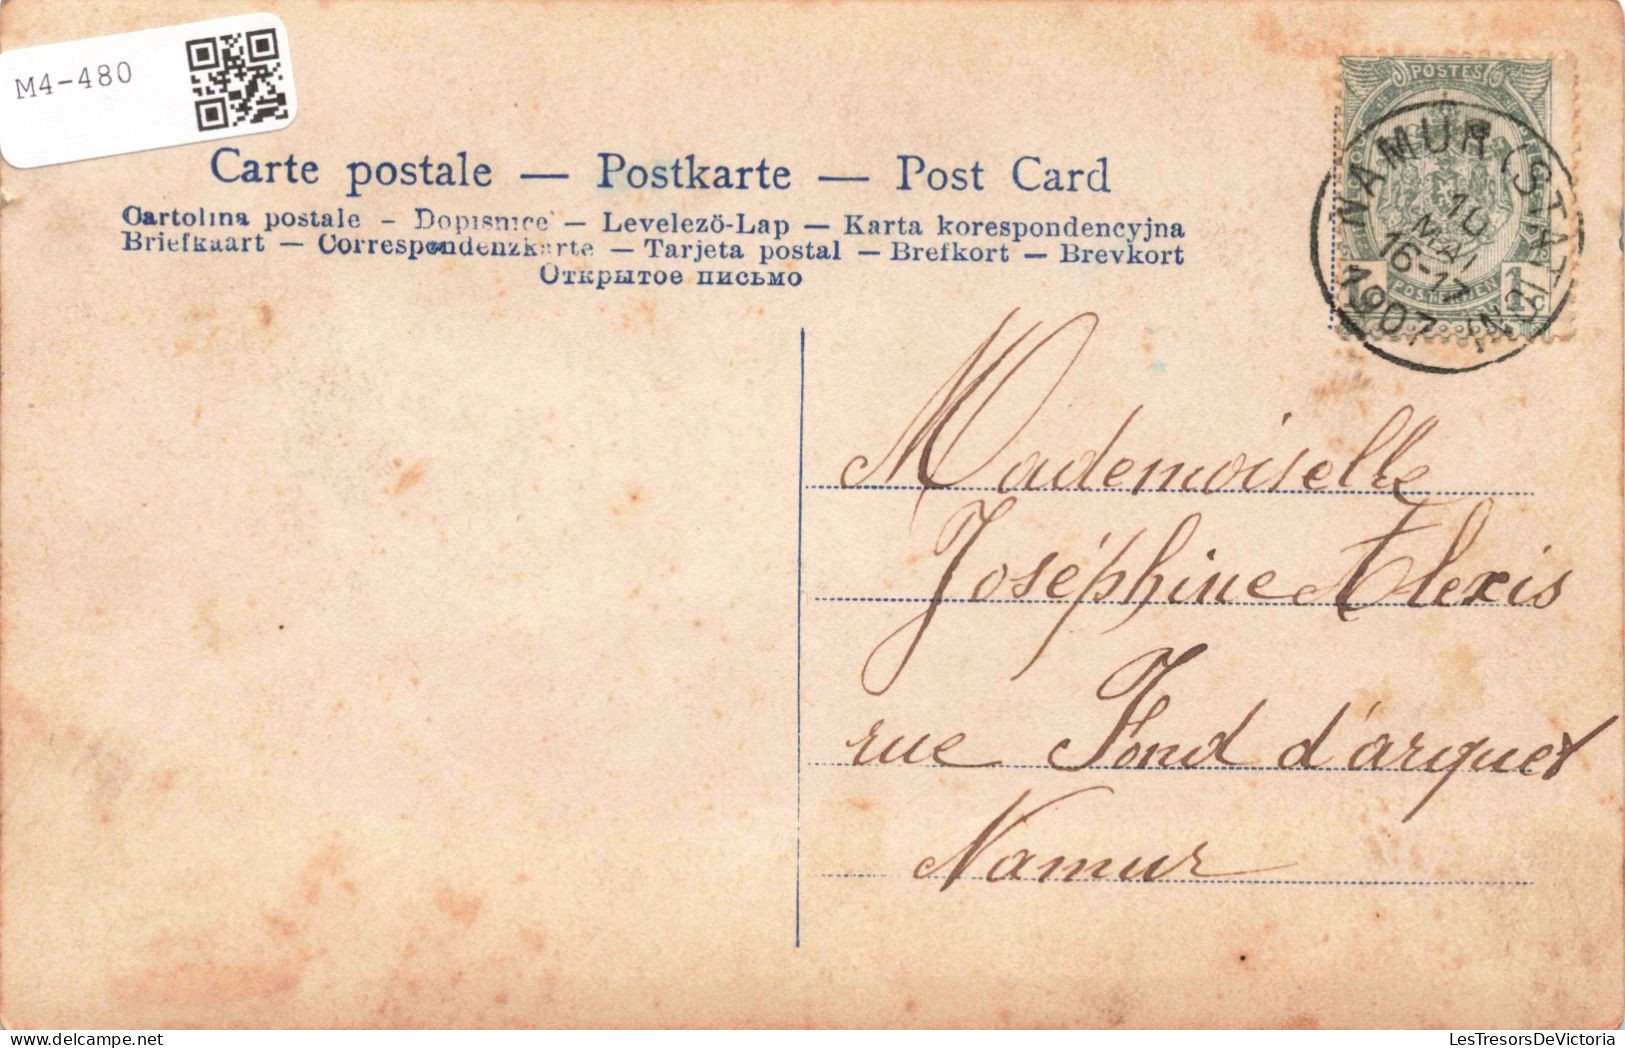 M4-480
Carte postale — Postkarte — Post Card
Cartolina postale – Dopisnice – Levelező-Lap — Karta korespondencyjna
Briefkaart — Correspondenzkarte — Tarjeta postal — Brefkort — Brevkort
Открытое письмо
POSTES
NAMUR (STATION)
10
MAI
16-17
1907
1c
Mademoiselle
Joséphine Alexis
rue Fond d'arquet
Namur
LesTresorsDeVictoria